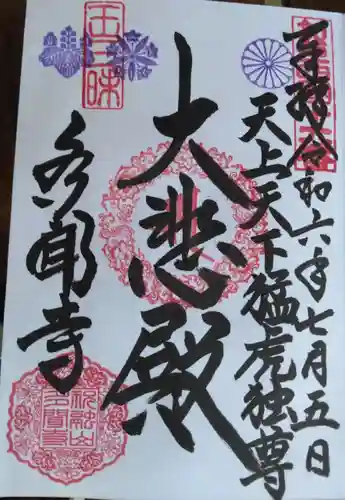 奉拝 令和六年七月五日
天上天下猛虎独尊
大悲殿
多聞寺
王三昧